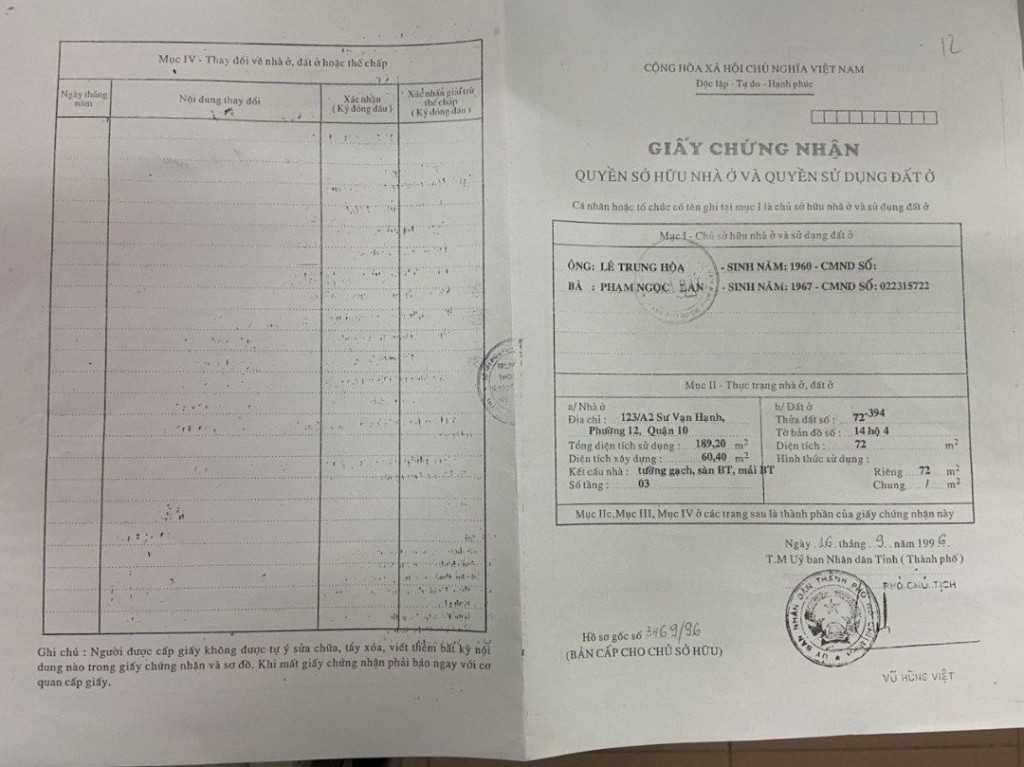 Mục IV - Thay đổi về nhà ở, đất ở hoặc thế chấp
Ngày tháng năm
Nội dung thay đổi
Xác nhận
(Ký đóng dấu)
Xác nhận giải trừ
thế chấp
(Ký đóng dấu)
Ghi chú : Người được cấp giấy không được tự ý sửa chữa, tẩy xóa, viết thêm bất kỳ nội
dung nào trong giấy chứng nhận và sơ đồ. Khi mất giấy chứng nhận phải báo ngay với cơ
quan cấp giấy.
12
CỘNG HÒA XÃ HỘI CHỦ NGHĨA VIỆT NAM
Độc lập - Tự do - Hạnh phúc
GIẤY CHỨNG NHẬN
QUYỀN SỞ HỮU NHÀ Ở VÀ QUYỀN SỬ DỤNG ĐẤT Ở
Cá nhân hoặc tổ chức có tên ghi tại mục I là chủ sở hữu nhà ở và sử dụng đất ở
Mục I - Chủ sở hữu nhà ở và sử dụng đất ở
ÔNG: LÊ TRUNG HÒA - SINH NĂM: 1960 - CMND SỐ:
BÀ : PHẠM NGỌC LAN - SINH NĂM: 1967 - CMND SỐ: 022315722
Mục II - Thực trạng nhà ở, đất ở
a/ Nhà ở
Địa chỉ : 123/A2 Sư Vạn Hạnh,
Phường 12, Quận 10
Tổng diện tích sử dụng : 189,20 m2
Diện tích xây dựng : 60,40 m2
Kết cấu nhà : tường gạch, sàn BT, mái BT
Số tầng : 03
b/ Đất ở
Thửa đất số : 72-394
Tờ bản đồ số : 14 hộ 4
Diện tích : 72 m2
Hình thức sử dụng :
Riêng 72 m2
Chung / m2
Mục IIc,Mục III, Mục IV ở các trang sau là thành phần của giấy chứng nhận này
Ngày 16 tháng 9 năm 1996
T.M Uỷ ban Nhân dân Tỉnh ( Thành phố )
PHÓ CHỦ TỊCH
Hồ sơ gốc số 3469/96
(BẢN CẤP CHO CHỦ SỞ HỮU)
VŨ HÙNG VIỆT